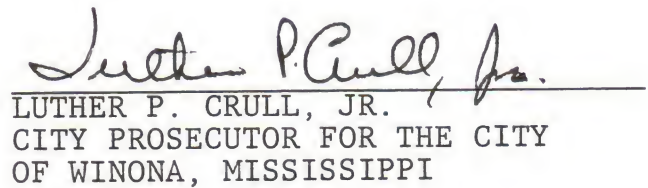 Luther P. Crull, Jr.
LUTHER P. CRULL, JR.
CITY PROSECUTOR FOR THE CITY
OF WINONA, MISSISSIPPI